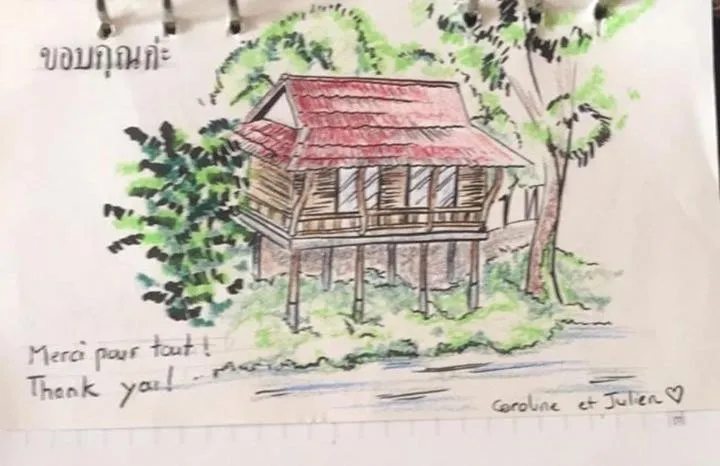 ขอบคุณค่ะ
Merci pour tout !
Thank you!
Caroline et Julien ♡